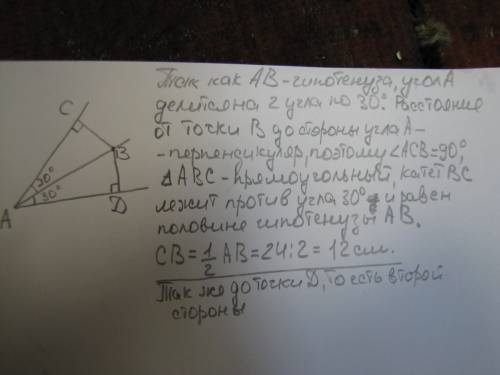 Так как АВ-гипотенуза, угол А
делится на 2 угла по 30°. Расстояние
от точки В до стороны угла А-
-перпенсикуляр, поэтому ∠ACB=90°,
△ABC-прямоугольный, катет BC
лежит против угла 30° и равен
половине гипотенузы АВ.
CB=1/2 AB=24:2=12см.
Так же до точки Д, то есть второй
стороны
C
B
30°
30°
A
D